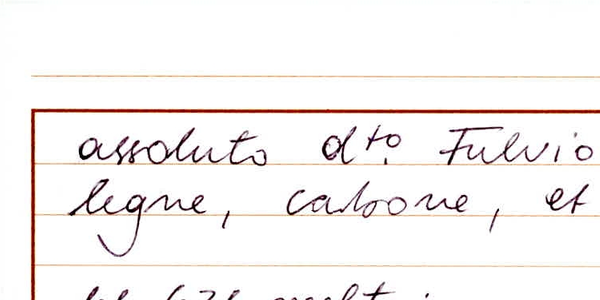 assoluto dto. Fulvio
legne, carbone, et